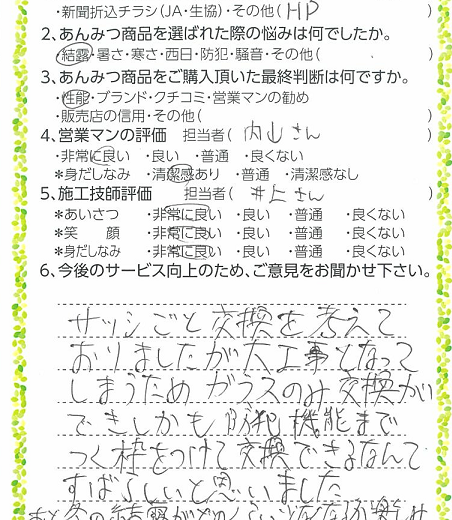 ・新聞折込チラシ(JA・生協)・その他( HP )
2、あんみつ商品を選ばれた際の悩みは何でしたか。
・結露・暑さ・寒さ・西日・防犯・騒音・その他( )
3、あんみつ商品をご購入頂いた最終判断は何ですか。
・性能・ブランド・クチコミ・営業マンの勧め
・販売店の信用・その他( )
4、営業マンの評価 担当者( 内山さん )
・非常に良い ・良い ・普通 ・良くない
*身だしなみ ・清潔感あり ・普通 ・清潔感なし
5、施工技師評価 担当者( 井上さん )
*あいさつ ・非常に良い ・良い ・普通 ・良くない
*笑 顔 ・非常に良い ・良い ・普通 ・良くない
*身だしなみ ・非常に良い ・良い ・普通 ・良くない
6、今後のサービス向上のため、ご意見をお聞かせ下さい。
サッシごと交換を考えて
おりましたが大工事となって
しまうため ガラスのみ交換が
できしかも 防犯機能まで
つく枠をつけて交換できるなんて
すばらしいと思いました
あと冬の結露が